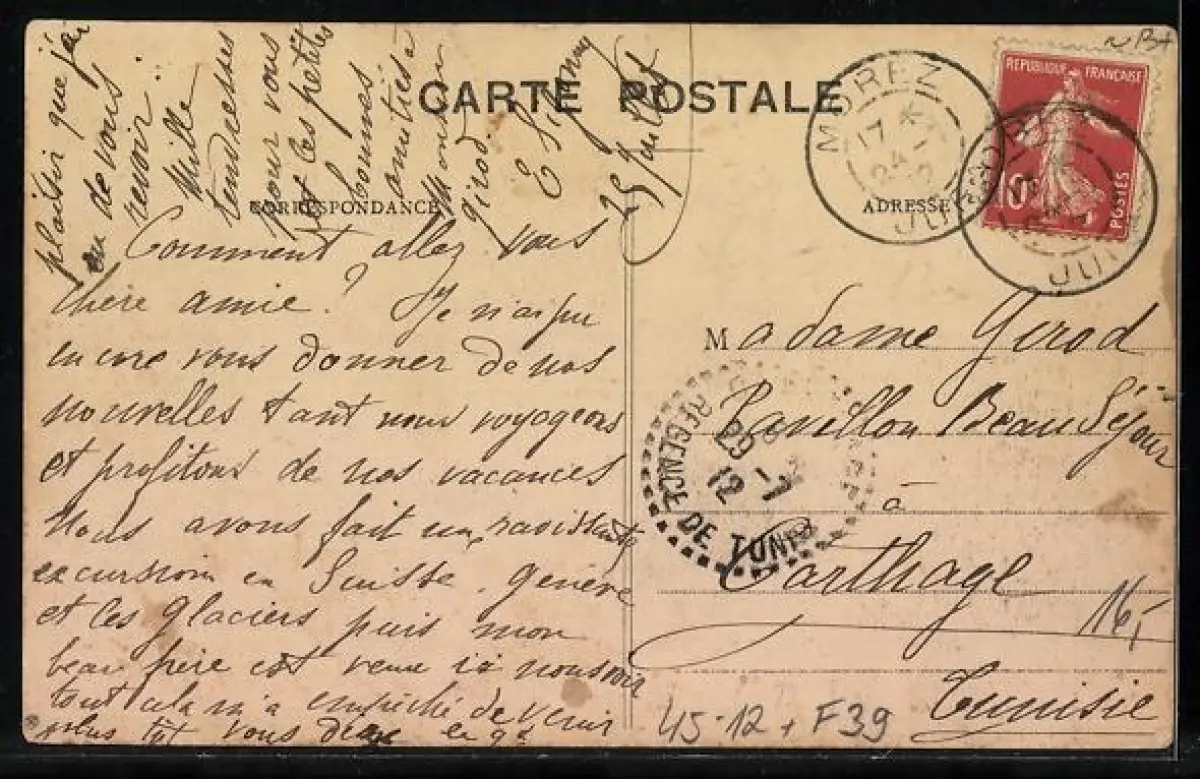 CARTE POSTALE
CORRESPONDANCE
ADRESSE
Comment allez vous
chère amie? Je n'ai pu
encore vous donner de nos
nouvelles tant nous voyageons
et profitons de nos vacances
Nous avons fait une ravissante
excursion en Suisse. Genève
et les glaciers puis mon
beau père est venu ici nous voir
tout cela m'a empêché de venir
plus tôt vous dire le gd
plaisir que j'ai
eu de vous
revoir.
Mille
tendresses
pour vous
et les petites
bonnes
amitiés à
Monsieur
Girod
25 Juillet
Madame Girod
Pavillon Beau Séjour
à
Carthage
Tunisie
MOREZ
17 *
24 - 7
JURA
REPUBLIQUE FRANÇAISE
10c
POSTES
JURA
REGENCE DE TUNIS
29 - 7
12
16,-
45-12 + F39